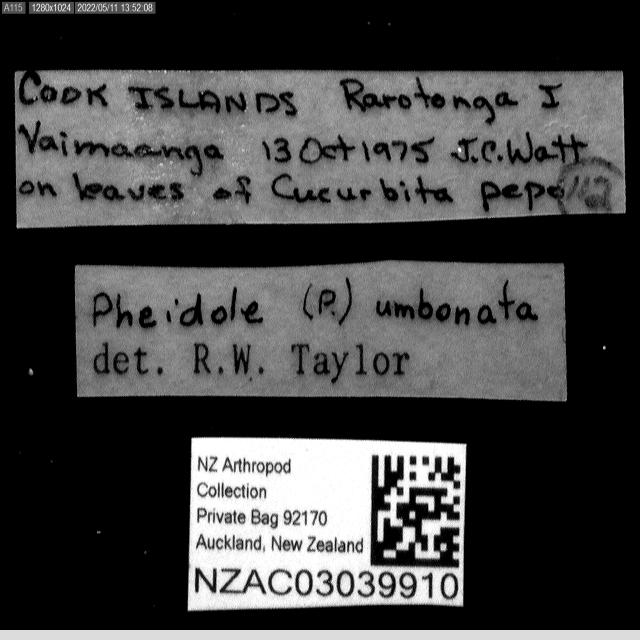 A115 1280x1024 2022/05/11 13:52:08
COOK ISLANDS Rarotonga I
Vaimaanga 13 Oct 1975 J.C. Watt
on leaves of Cucurbita pepo
Pheidole (P.) umbonata
det. R.W. Taylor
NZ Arthropod
Collection
Private Bag 92170
Auckland, New Zealand
NZAC03039910